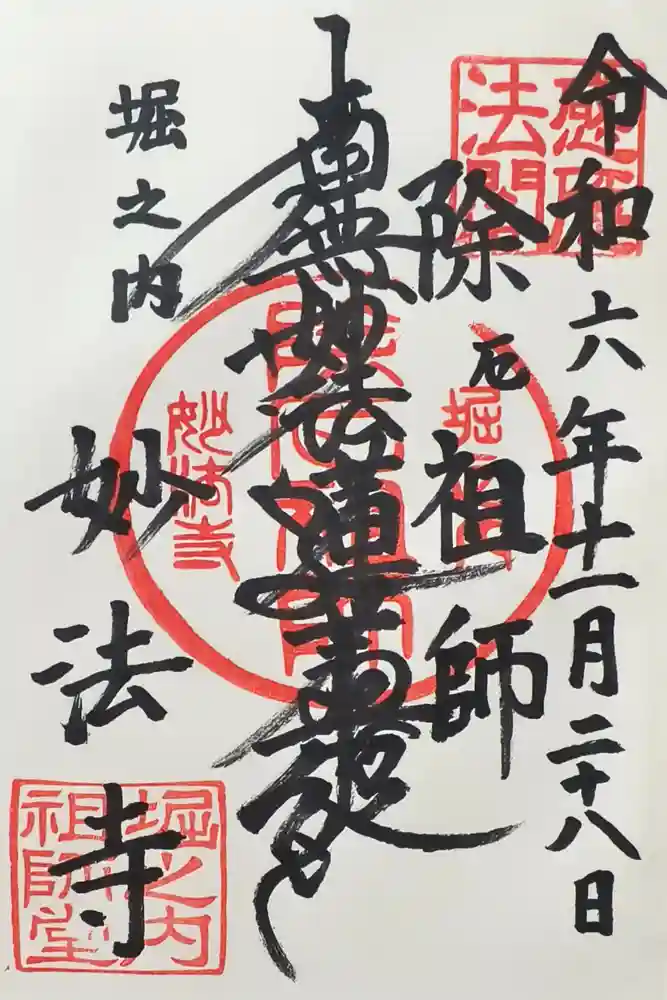 令和六年十一月二十八日
除厄祖師
南無妙法蓮華経
堀之内
妙法寺
妙法寺
堀之内
祖師堂